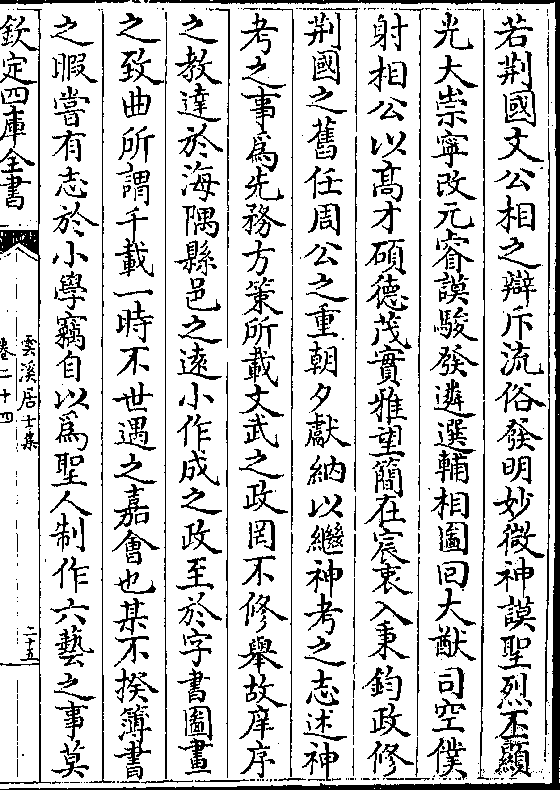 若荆國文公相之辯斥流俗發明妙微神謨聖烈丕顯
光大崇寧改元睿謨駿發遴選輔相圖囘大猷司空僕
射相公以髙才碩德茂實雅望簡在宸衷入秉鈞政修
荆國之舊任周公之重朝夕獻納以繼神考之志述神
考之事為先務方策所載文武之政罔不修舉故庠序
之教達於海隅縣邑之逺小作成之政至於字書圖畫
之致曲所謂千載一時不世遇之嘉會也某不揆簿書
之暇嘗有志於小學竊自以為聖人制作六藝之事莫
欽定四庫全書
雲溪居士集
卷二十四
二十五